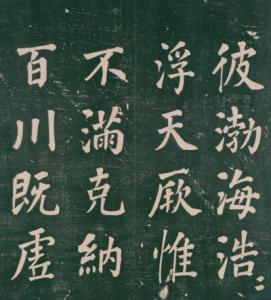 彼渤海浩〻
浮天厥惟
不滿克納
百川既虛